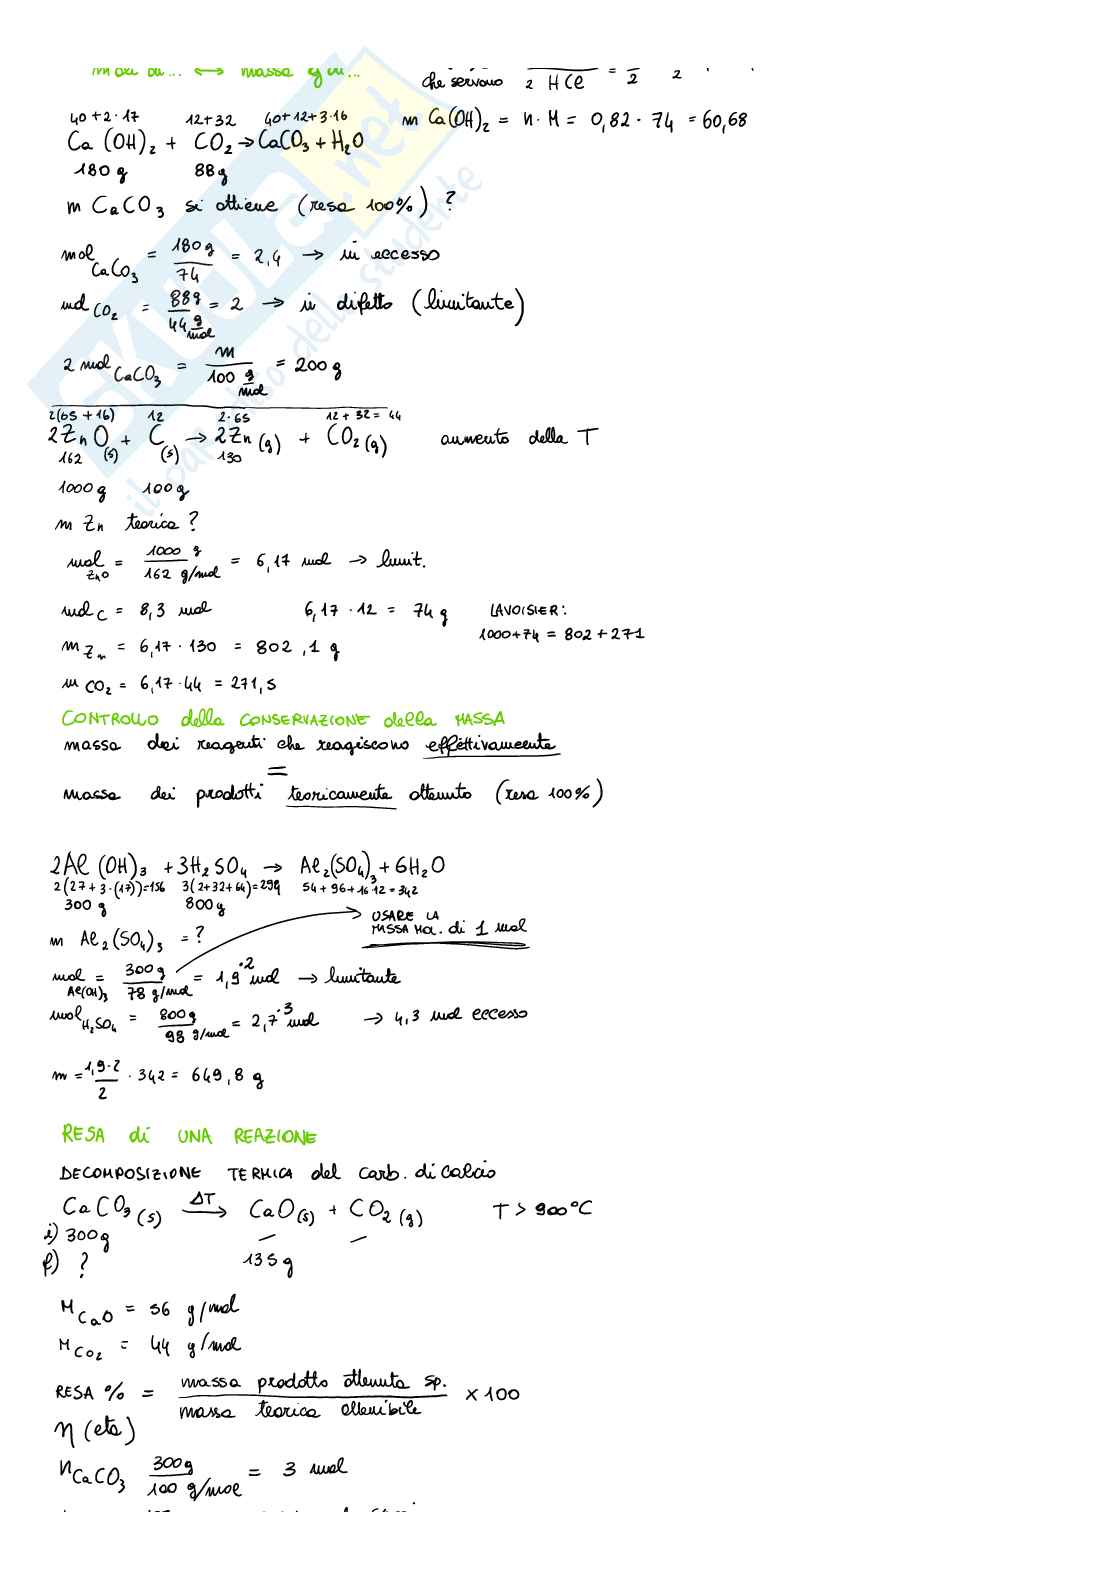 moli di... ↔ massa in...
che servono 2 HCl = 2 2
40+2·17 12+32 40+12+3·16
m Ca(OH)₂ = n·M = 0,82·74 = 60,68
Ca(OH)₂ + CO₂ → CaCO₃ + H₂O
180 g 88 g
m CaCO₃ si ottiene (resa 100%) ?
mol CaCO₃ = 180 g / 74 = 2,4 → in eccesso
mol CO₂ = 88 g / 44 g/mol = 2 → in difetto (limitante)
2 mol CaCO₃ = m / 100 g/mol = 200 g
2(65+16) 12 2·65 12+32=44
2ZnO(s) + C(s) → 2Zn(g) + CO₂(g) aumento della T
162 130
1000 g 100 g
m Zn teorica ?
mol ZnO = 1000 g / 162 g/mol = 6,17 mol → limit.
mol C = 8,3 mol 6,17·12 = 74 g LAVOISIER:
1000+74 = 802+271
m Zn = 6,17·130 = 802,1 g
m CO₂ = 6,17·44 = 271,5
CONTROLLO della CONSERVAZIONE della MASSA
massa dei reagenti che reagiscono effettivamente
=
massa dei prodotti teoricamente ottenuto (resa 100%)
2Al(OH)₃ + 3H₂SO₄ → Al₂(SO₄)₃ + 6H₂O
2(27+3·(17))=156 3(2+32+64)=294 54+96+16·12=342
300 g 800 g
USARE LA
MASSA MOL. di 1 mol
m Al₂(SO₄)₃ = ?
mol Al(OH)₃ = 300 g / 78 g/mol = 1,9·2 mol → limitante
mol H₂SO₄ = 800 g / 98 g/mol = 2,7·3 mol → 4,3 mol eccesso
m = 1,9·2 / 2 · 342 = 649,8 g
RESA di UNA REAZIONE
DECOMPOSIZIONE TERMICA del carb. di calcio
CaCO₃(s) ΔT → CaO(s) + CO₂(g) T > 900°C
i) 300 g – –
f) ? 135 g
M CaO = 56 g/mol
M CO₂ = 44 g/mol
RESA % = massa prodotto ottenuta sp. / massa teorica ottenibile × 100
η (eta)
n CaCO₃ 300 g / 100 g/mol = 3 mol
SKUOLA.net
il paradiso dello studente